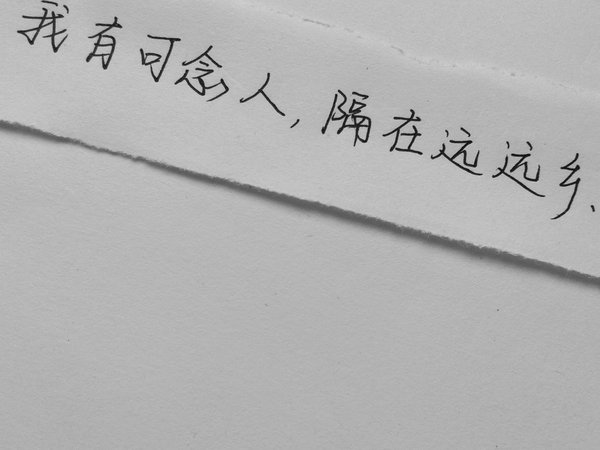 我有可念人，隔在远远乡、